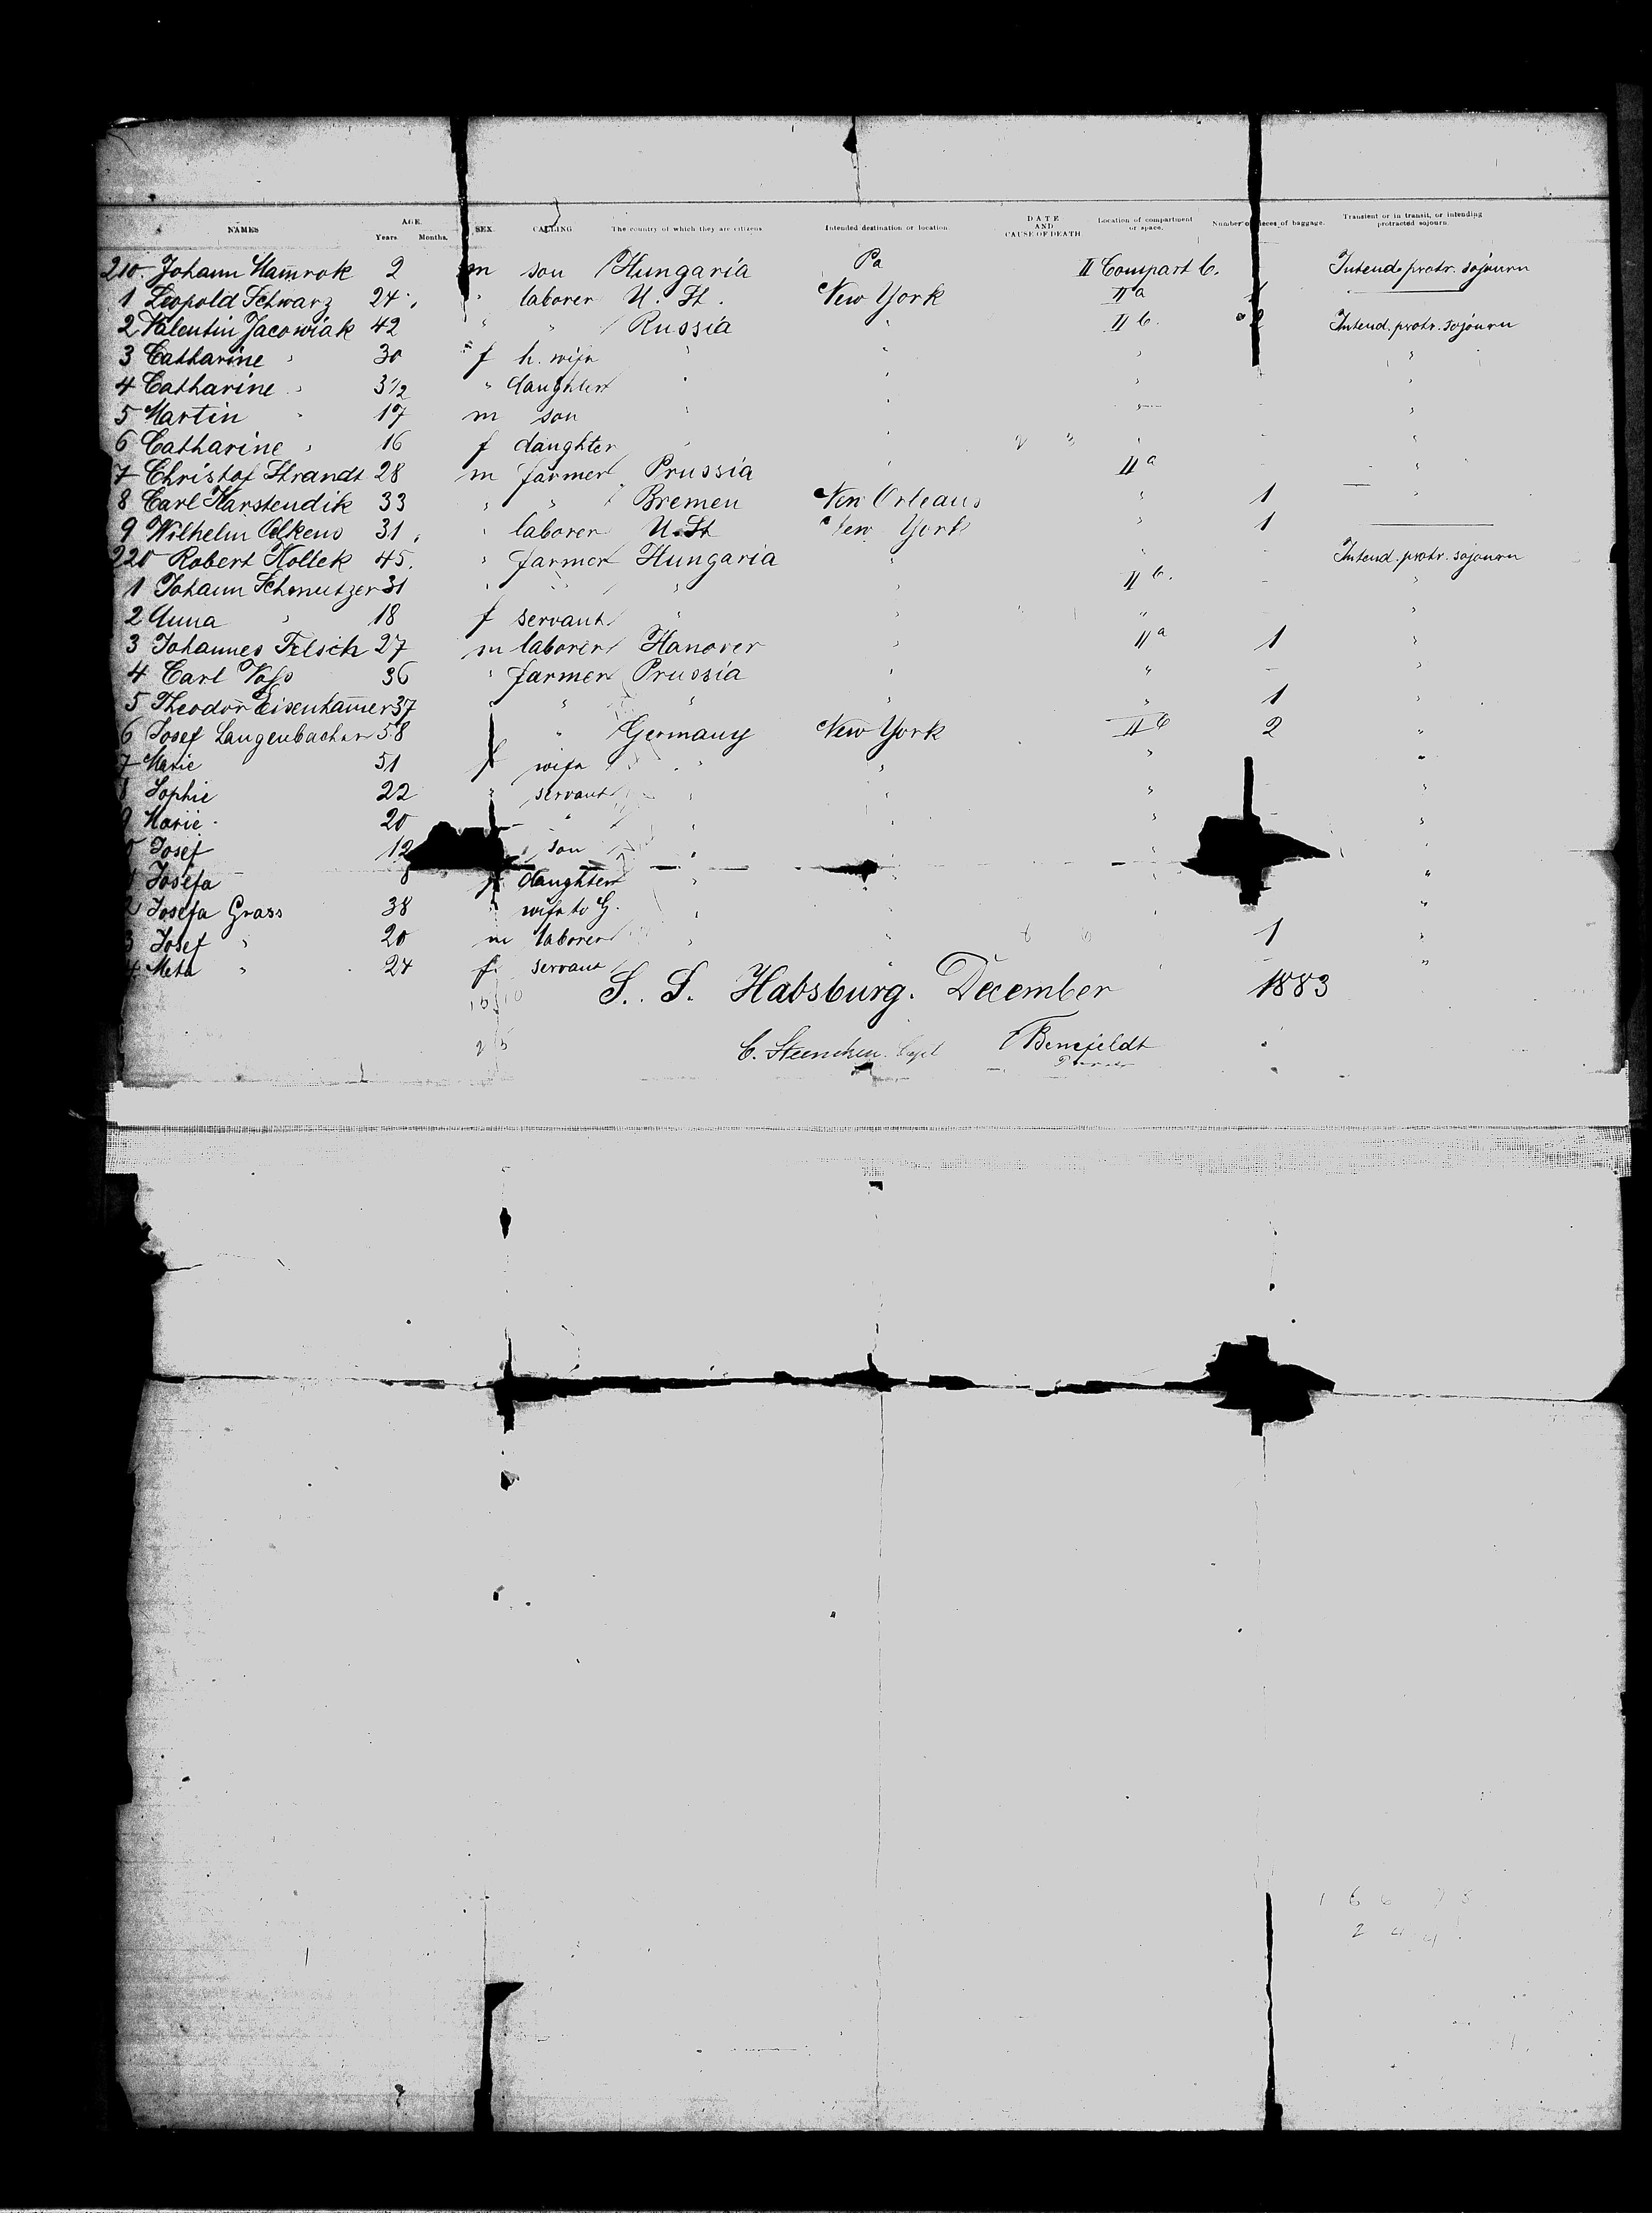 NAMES AGE. Years. Months. SEX. CALLING The country of which they are citizens Intended destination or location DATE AND CAUSE OF DEATH. Location of compartment or space. Number of pieces of baggage. Transient or in transit, or intending protracted sojourn.
210. Johann Hamrok 2 m son Hungaria Pa II Compart b. Intend. protr. sojourn
1 Leopold Schwarz 24 " laborer U. St. New York IIa
2 Valentin Jacowiak 42 " " Russia " II b. Intend. protr. sojourn
3 Catharine " 30 f h. wife " " " "
4 Catharine " 3 1/2 " daughter " " " "
5 Martin " 17 m son " " " "
6 Catharine " 16 f daughter " " " "
7 Christof Strandt 28 m farmer Prussia " IIa - "
8 Carl Karstendik 33 " " Bremen New Orleans " 1 "
9 Wilhelm 31 " laborer U. St New York " 1
220 Robert Kollek 45. " farmer Hungaria " " - Intend. protr. sojourn
1 Johann Schmutzer 31 " " " " II b. - "
2 Anna " 18 f servant " " " "
3 Johannes Felsch 27 m laborer Hanover " IIa 1 "
4 Carl Voss 36 " farmer Prussia " " - "
5 Theodor Eisenhamer 37 " " " " 1 "
6 Josef Langenbacher 58 " Germany New York II b 2 "
7 Marie 51 f wife " " " "
8 Sophie 22 " servant " " " "
9 Marie 20 " " " " "
0 Josef 12 son " " "
1 Josefa 8 f daughter " "
2 Josefa Grass 38 " wife to G. " "
3 Josef " 20 m laborer " " 1 "
4 Meta " 24 f. servant "
S. S. Habsburg. December 1883
Capt Benefeldt